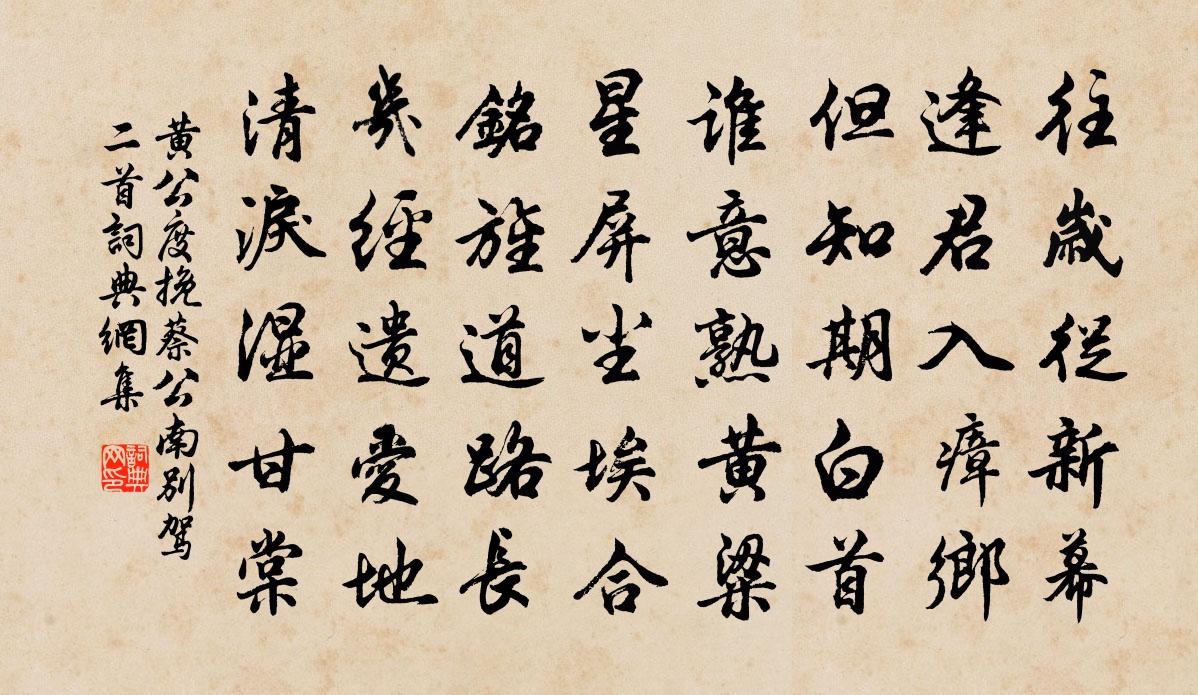 往歲從新幕
逢君入瘴鄉
但知期白首
谁意熟黄粱
星屏尘埃合
銘旌道路長
幾經遺愛地
清淚湿甘棠
黄公度挽蔡公南別駕
二首詞典網集
詞典網印